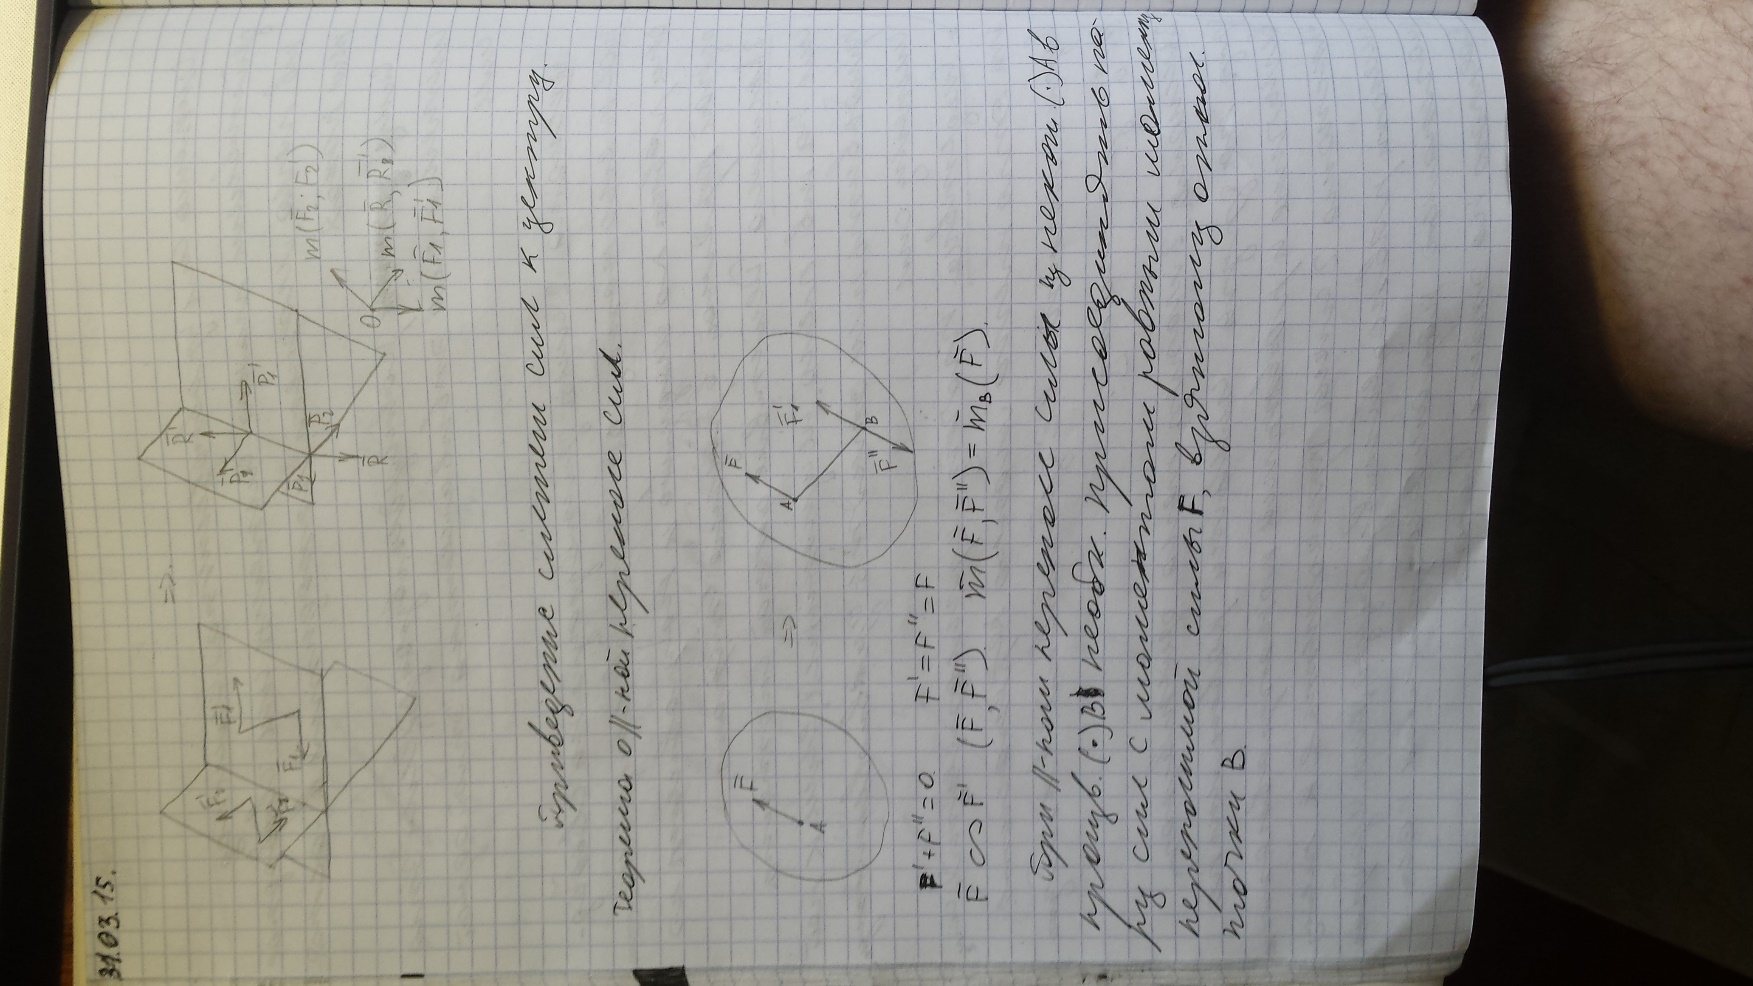 31.03.15.
=>.
F̄₁'
F̄₂'
F̄₁
F̄₂
R̄'
P̄₁'
P̄₂'
P̄₁
P̄₂
R̄
O
m(F̄₂; F̄₂')
m(R̄, R̄')
m(F̄₁, F̄₁')
Приведение системы сил к центру.
Теорема о ||-ной переносе сил.
F̄
A
=>
F̄
A
F̄'
B
F̄"
F̄'+F̄"=0 F'=F"=F
F̄ ∾ F̄' (F̄, F̄") m̄(F̄, F̄") = m̄_B(F̄).
При ||-ном переносе силы из некот. (·)A в
произв. (·)B необх. присоединять па-
ру сил с моментом равным моменту
переносимой силы F, взятому относ.
точки B.